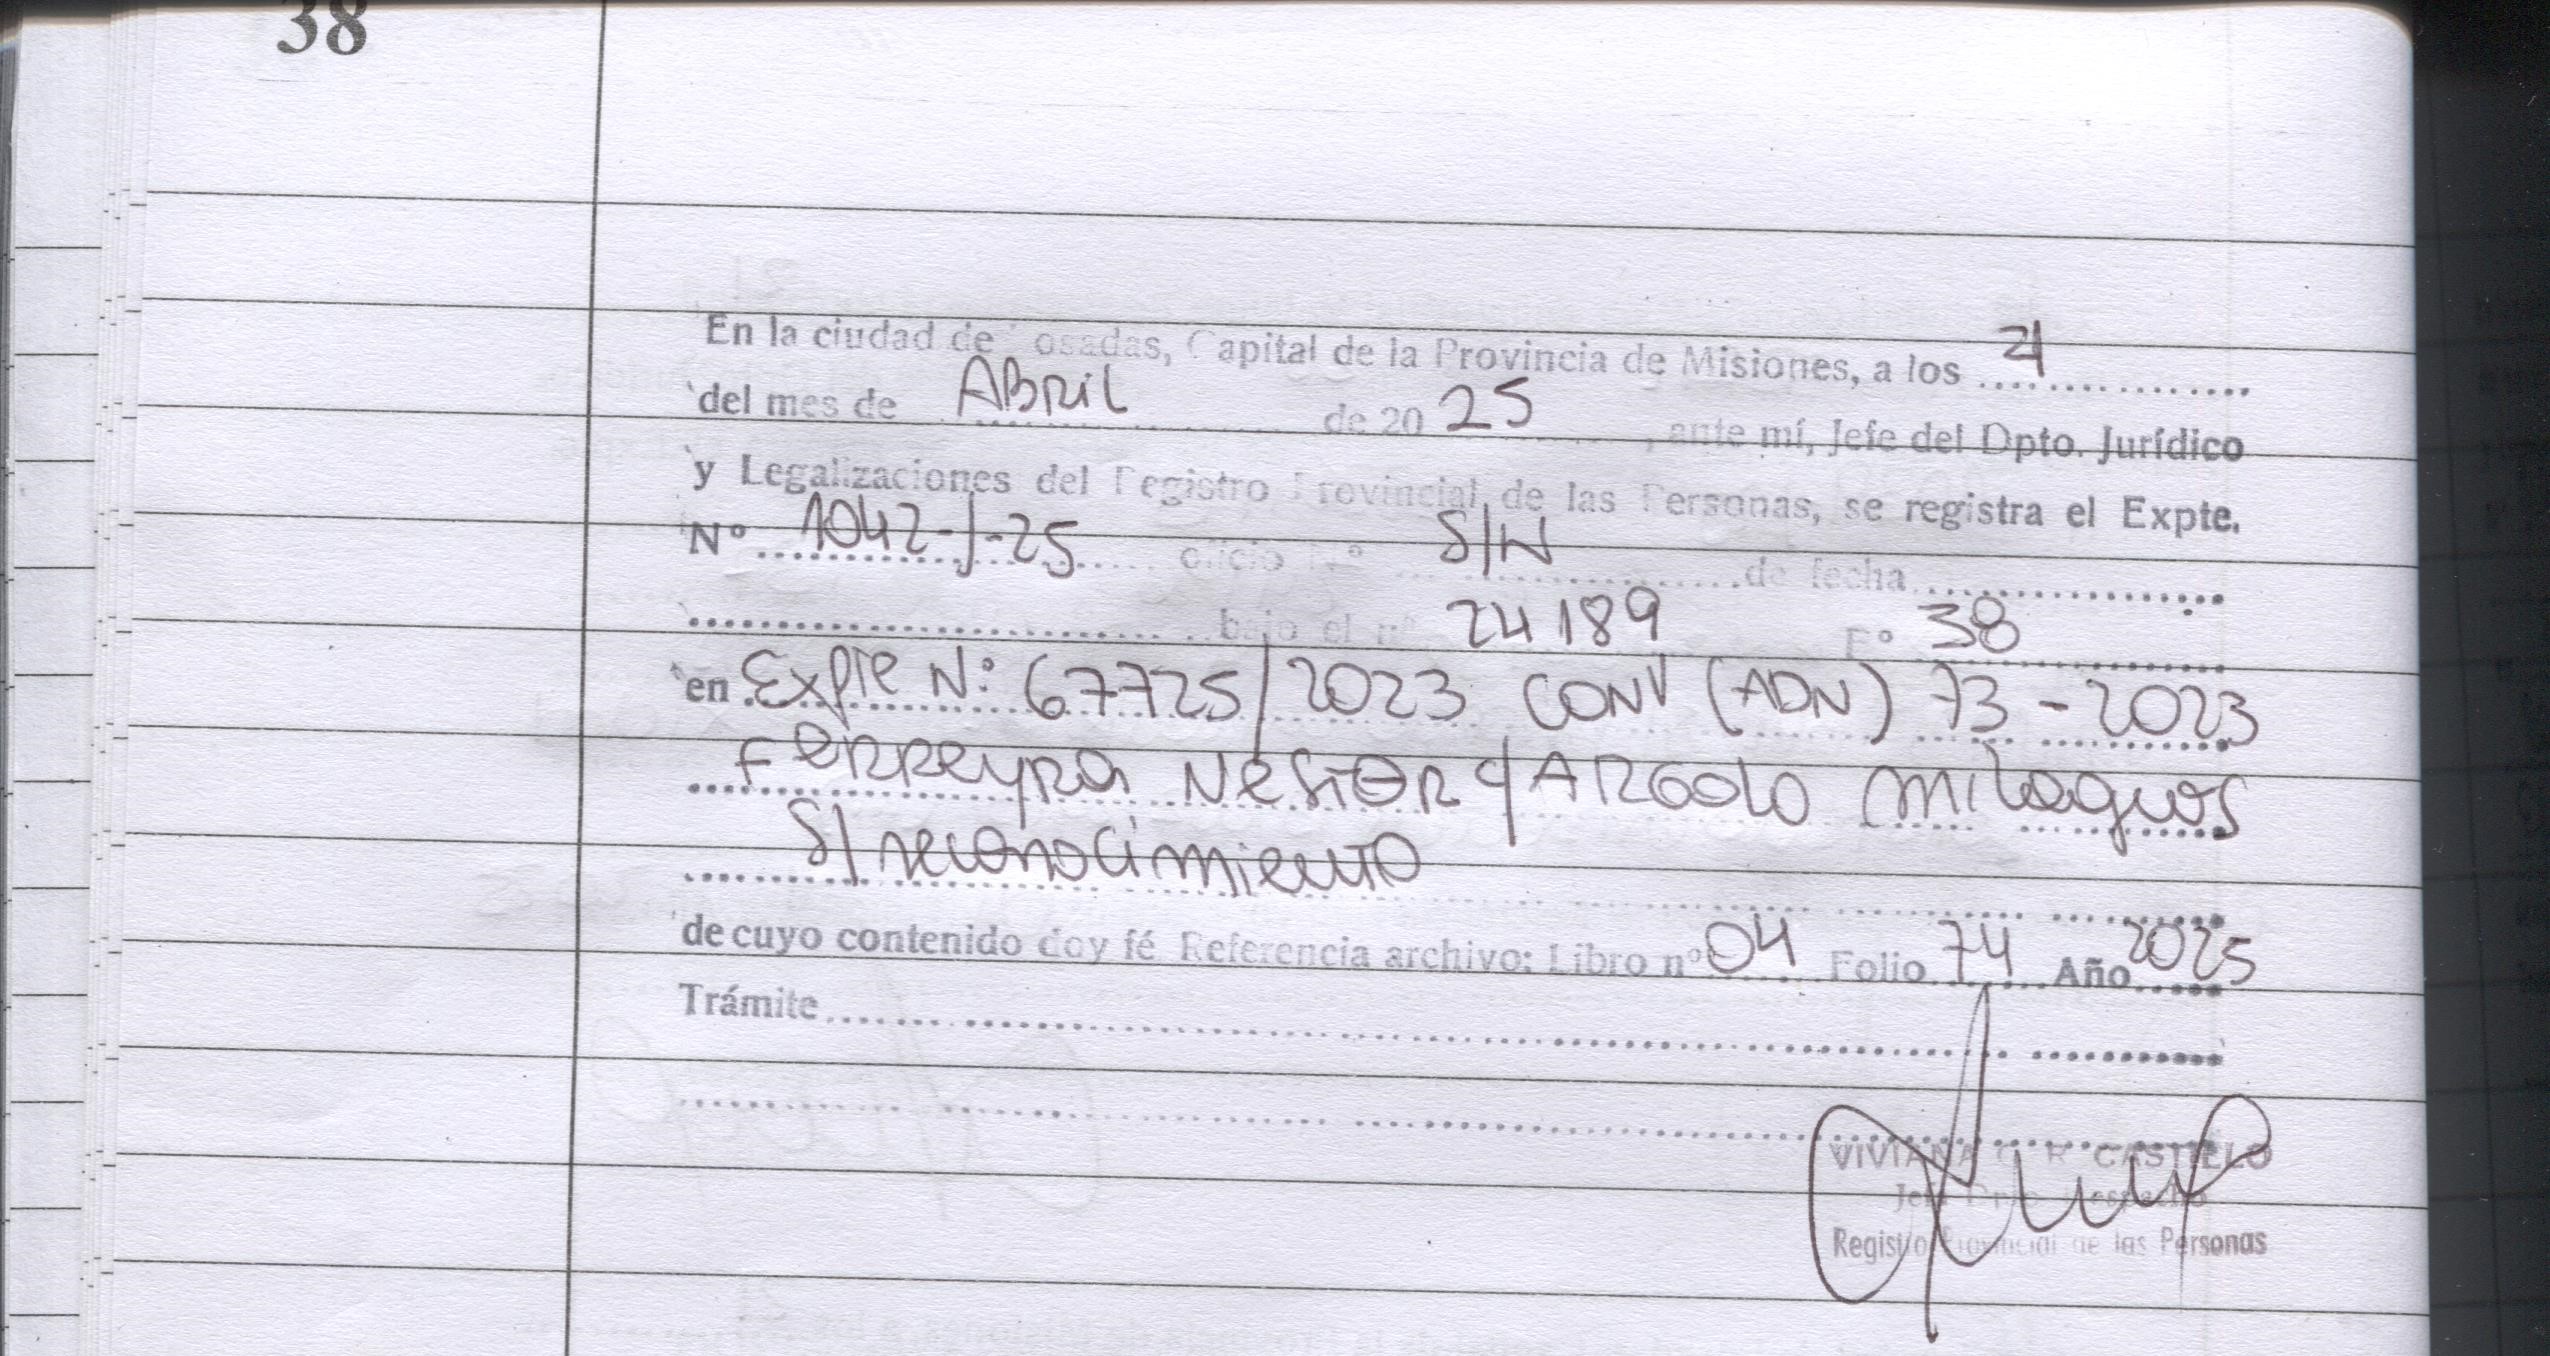 38
En la ciudad de Posadas, Capital de la Provincia de Misiones, a los 21
del mes de ABRIL de 20 25, ante mí, Jefe del Dpto. Jurídico
y Legalizaciones del Registro Provincial de las Personas, se registra el Expte.
Nº 1042-J-25 oficio Nº S/N de fecha
bajo el nº 24189 Fº 38
en Expte N: 67725/2023 CONV (ADN) 73-2023
Ferreyra Nestor c/ Argolo Milagros
S/ reconocimiento
de cuyo contenido doy fé Referencia archivo: Libro nº 04 Folio 74 Año 2025
Trámite
VIVIANA CASTIELO
Registro Provincial de las Personas